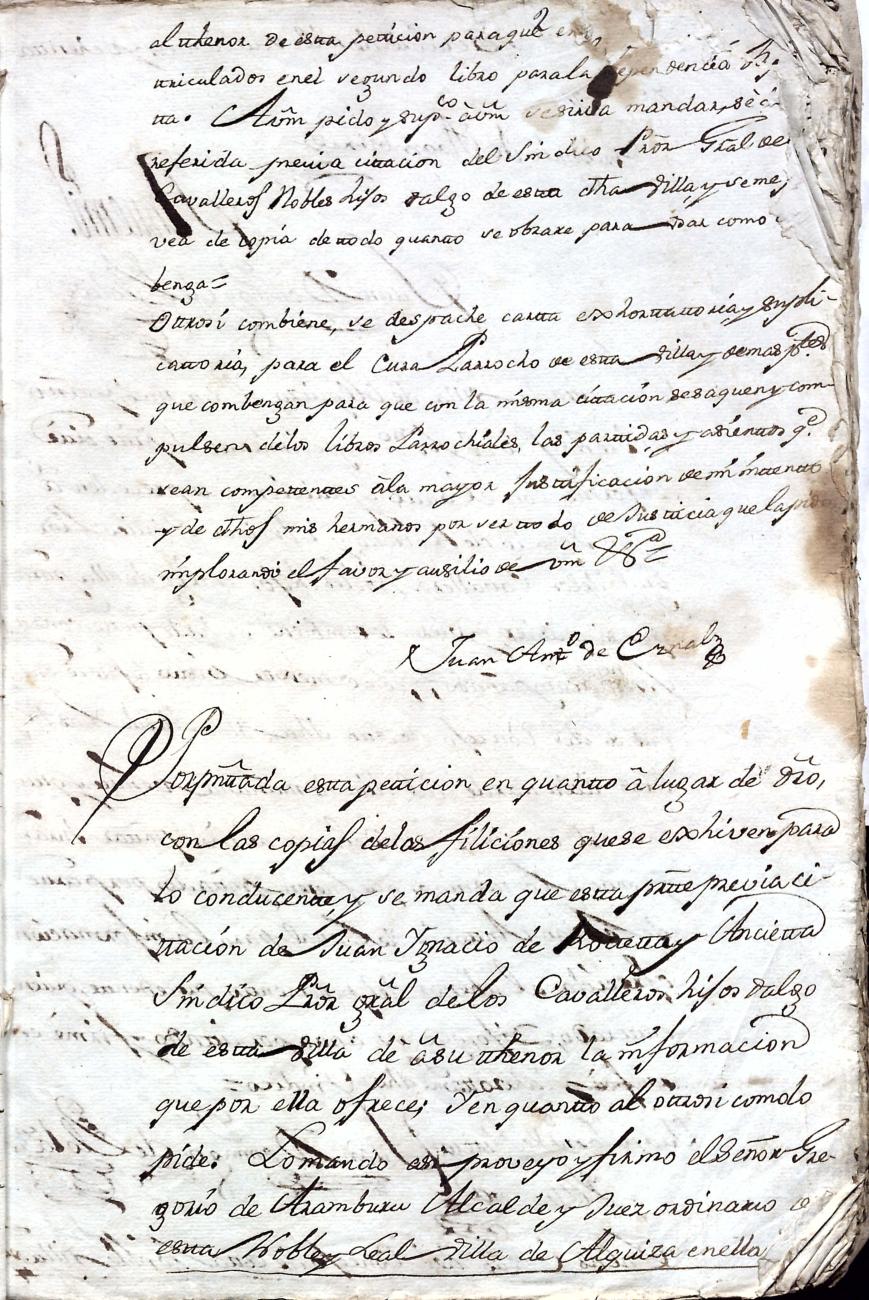 al thenor de esta peticion para que en
triculados en el segundo libro para la dependencia
tta. A Vm pido y supco. a Vm se sirva mandar se
referida previa cittacion del Sindico Prôr Gral de
Cavalleros Nobles hijos dalgo de estta dha Villa y se me
vea de copia de ttodo quantto se obrare para usar como
benga=
Ottrosi combiene, se despache cartta exhorttattoria y supli-
cattoria, para el Cura Parrocho de esta Villa y demas pttes
que combengan para que con la misma cittación se saquen y com-
pulsen de los libros Parrochiales, las parttidas y asienttos qe.
sean compettenttes â la mayor Justificacion de mi inttentto
y de dhos mis hermanos por ser ttodo de Justicia que la pido
implorando el favor y ausilio de Vm Vtt=
Juan Antto de Ernalz
Por presenttada estta petticion en quantto â lugar de dro,
con las copias de las filiciones que se exhiven para
lo conducentte y se manda que estta partte previa ci-
ttación de Juan Ignacio de Rocetta y Ancietta
Sindico Prôr gral de los Cavalleros hijos dalgo
de estta Villa dè â su thenor la informacion
que por ella ofrece; Y en quantto al ottrosi como lo
pide. Lo mando asi proveyó y firmo el Señor Gre-
gorio de Aramburu Alcalde y Juez ordinario de
estta Noble y Leal Villa de Alquiza en ella